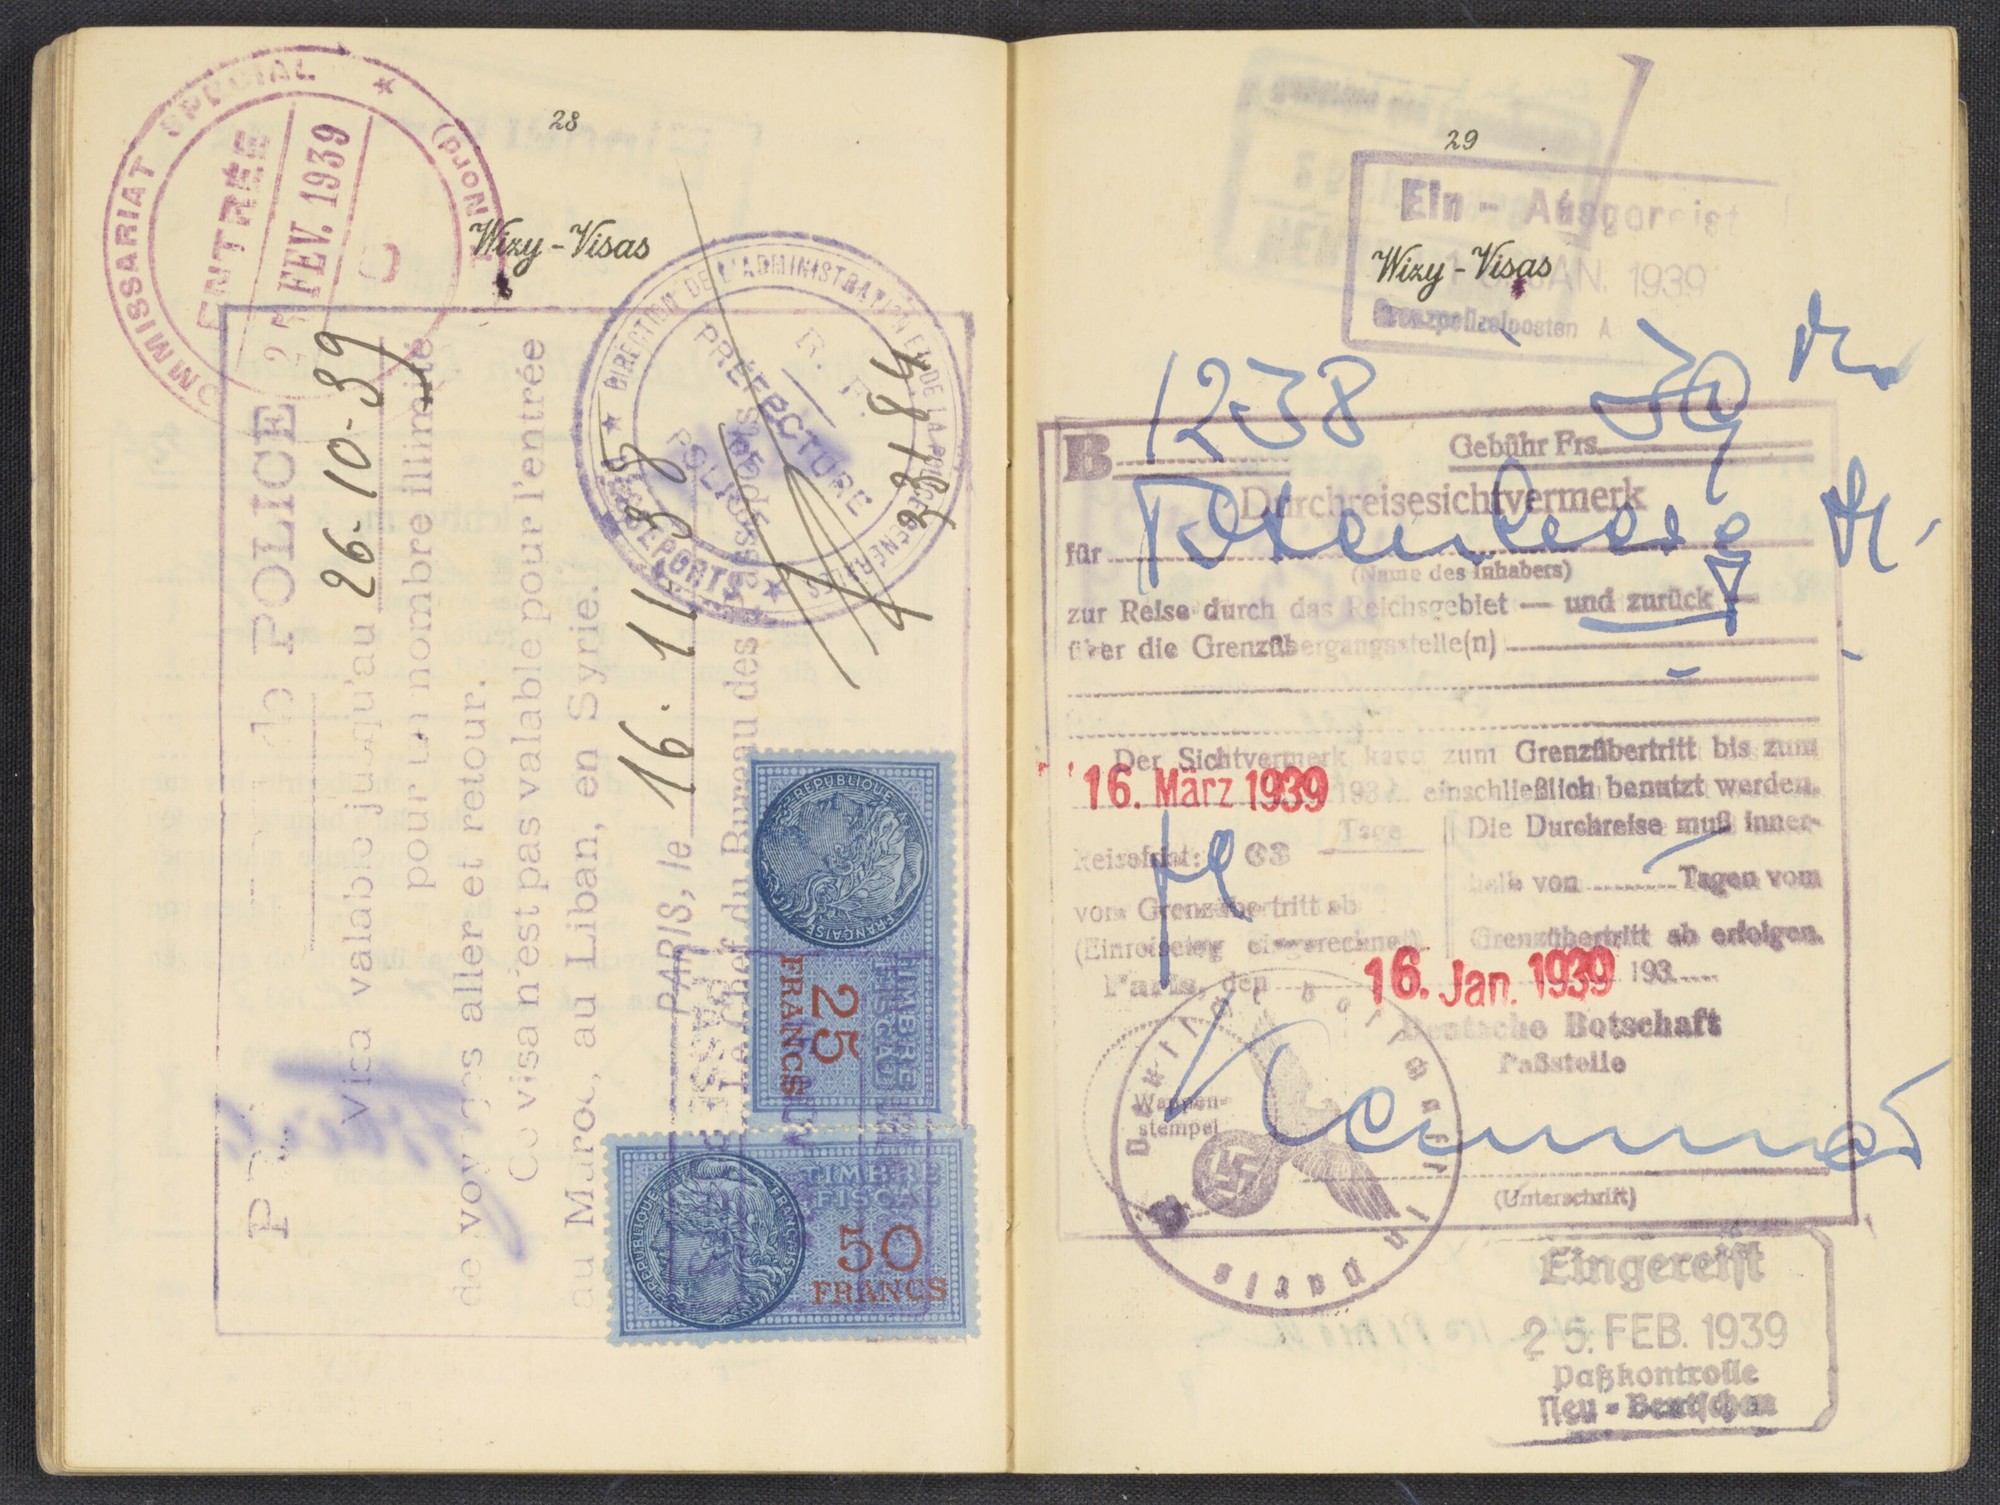 28
Wizy-Visas
COMMISSARIAT SPECIAL ★ (Nord)
ENTRÉE
FEV. 1939
C
de POLICE
visa valable jusqu'au 26-10-39
pour un nombre illimité
de voyages aller et retour.
Ce visa n'est pas valable pour l'entrée
au Maroc, au Liban, en Syrie.
PARIS, le 16. 11 38
Le Chef du Bureau des Passeports
★ DIRECTION DE L'ADMINISTRATION ET DE LA POLICE GENERALES ★
PASSEPORTS
R. F.
PRÉFECTURE
POLICE
RÉPUBLIQUE FRANÇAISE
TIMBRE
FISCAL
25
FRANCS
RÉPUBLIQUE FRANÇAISE
TIMBRE
FISCAL
50
FRANCS
29
Ein - Ausgereist
JAN. 1939
Grenzpolizeiposten A
Wizy-Visas
B 1238 39
Gebühr Frs.
Durchreisesichtvermerk
für
(Name des Inhabers)
zur Reise durch das Reichsgebiet — und zurück —
über die Grenzübergangsstelle(n)
Der Sichtvermerk kann zum Grenzübertritt bis zum
16. März 1939 193 einschließlich benutzt werden.
Reisefrist: Tage
vom Grenzübertritt ab
(Einreisetag eingerechnet)
Die Durchreise muß inner-
halb von Tagen vom
Grenzübertritt ab erfolgen.
Paris, den 16. Jan. 1939 193
Deutsche Botschaft
Paßstelle
Wappen-
stempel
Deutsche Botschaft in Paris
(Unterschrift)
Eingereist
25. FEB. 1939
Paßkontrolle
Neu-Bentschen